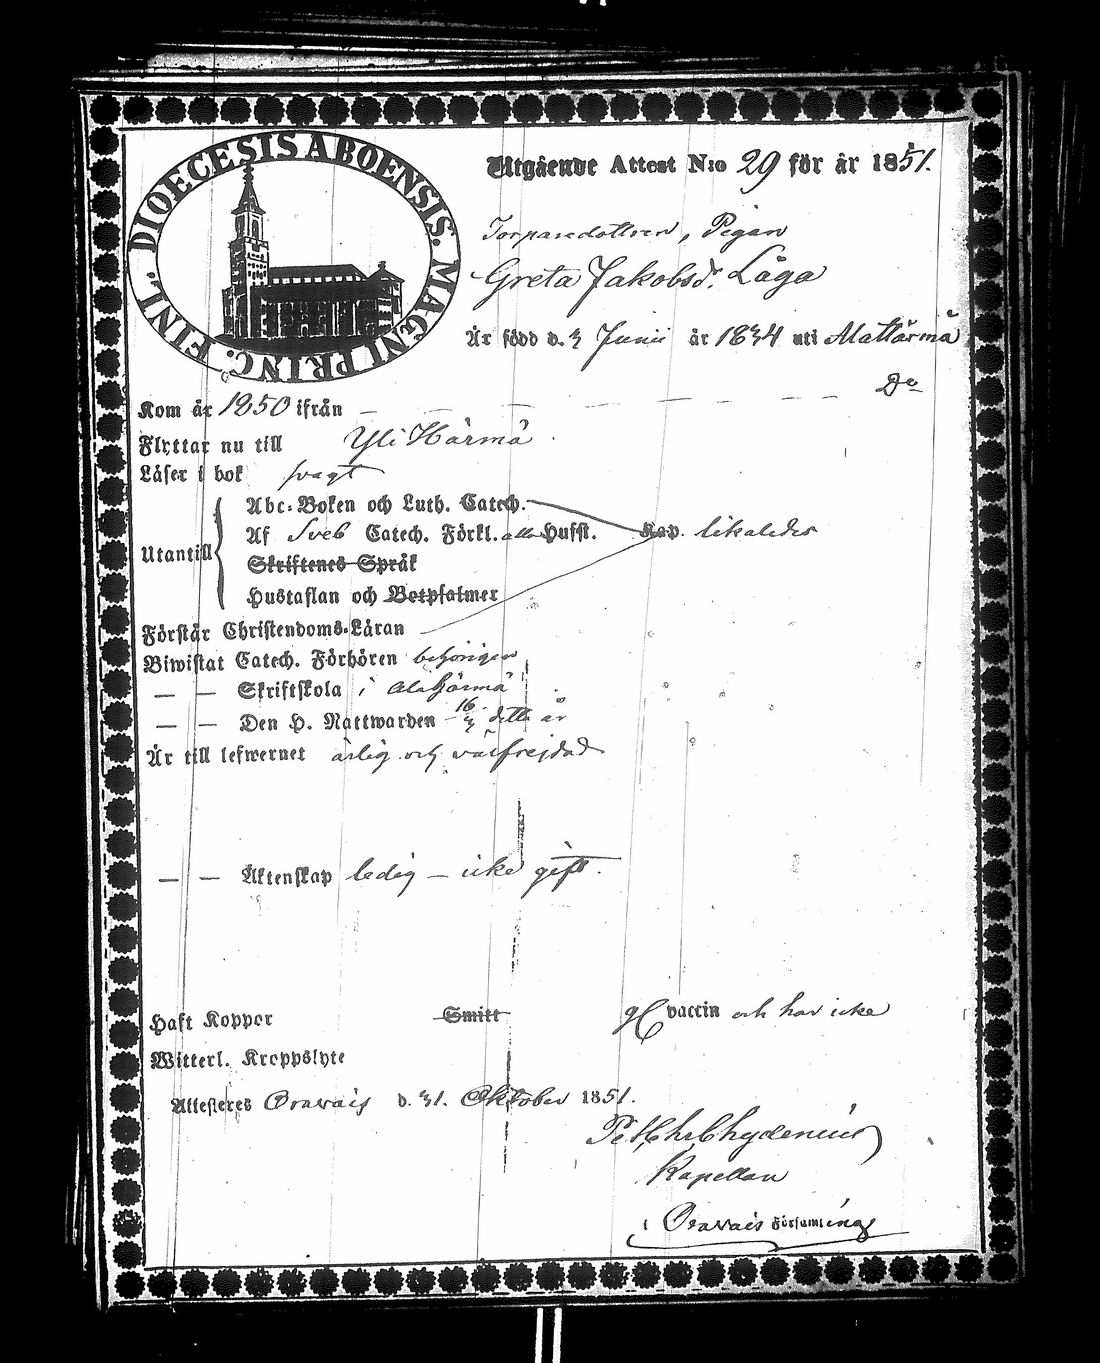 DIOECESIS ABOENSIS. MAGNI PRINC. FINL.
Utgående Attest N:o 29 för år 1851.
Torparedottren, Pigan
Greta Jakobsdr. Låga
Är född d. 3 Junii år 1834 uti Alahärmä
Kom år 1850 ifrån — — — — — — — Do
Flyttar nu till Yli Härmä.
Läser i bok svagt
Abc-Boken och Luth. Catech.
Af Sveb Catech. Förkl. alla Hufst. Kap. likaledes
Utantill
Skriftenes Språk
Hustaflan och Botpsalmer
Förstår Christendoms-Läran
Biwistat Catech. Förhören behörigen
— — Skriftskola i Alahärmä
— — Den H. Nattwarden 16/3 detta år
Är till lefwernet ärlig och välfrejdad
— — Äktenskap ledig — icke gift.
Haft Koppor Smitt vaccin och har icke
Witterl. Kroppslyte
Attesteras Oravais d. 31. Oktober 1851.
Pet. Chr. Chydenius
Kapellan
i Oravais Församling